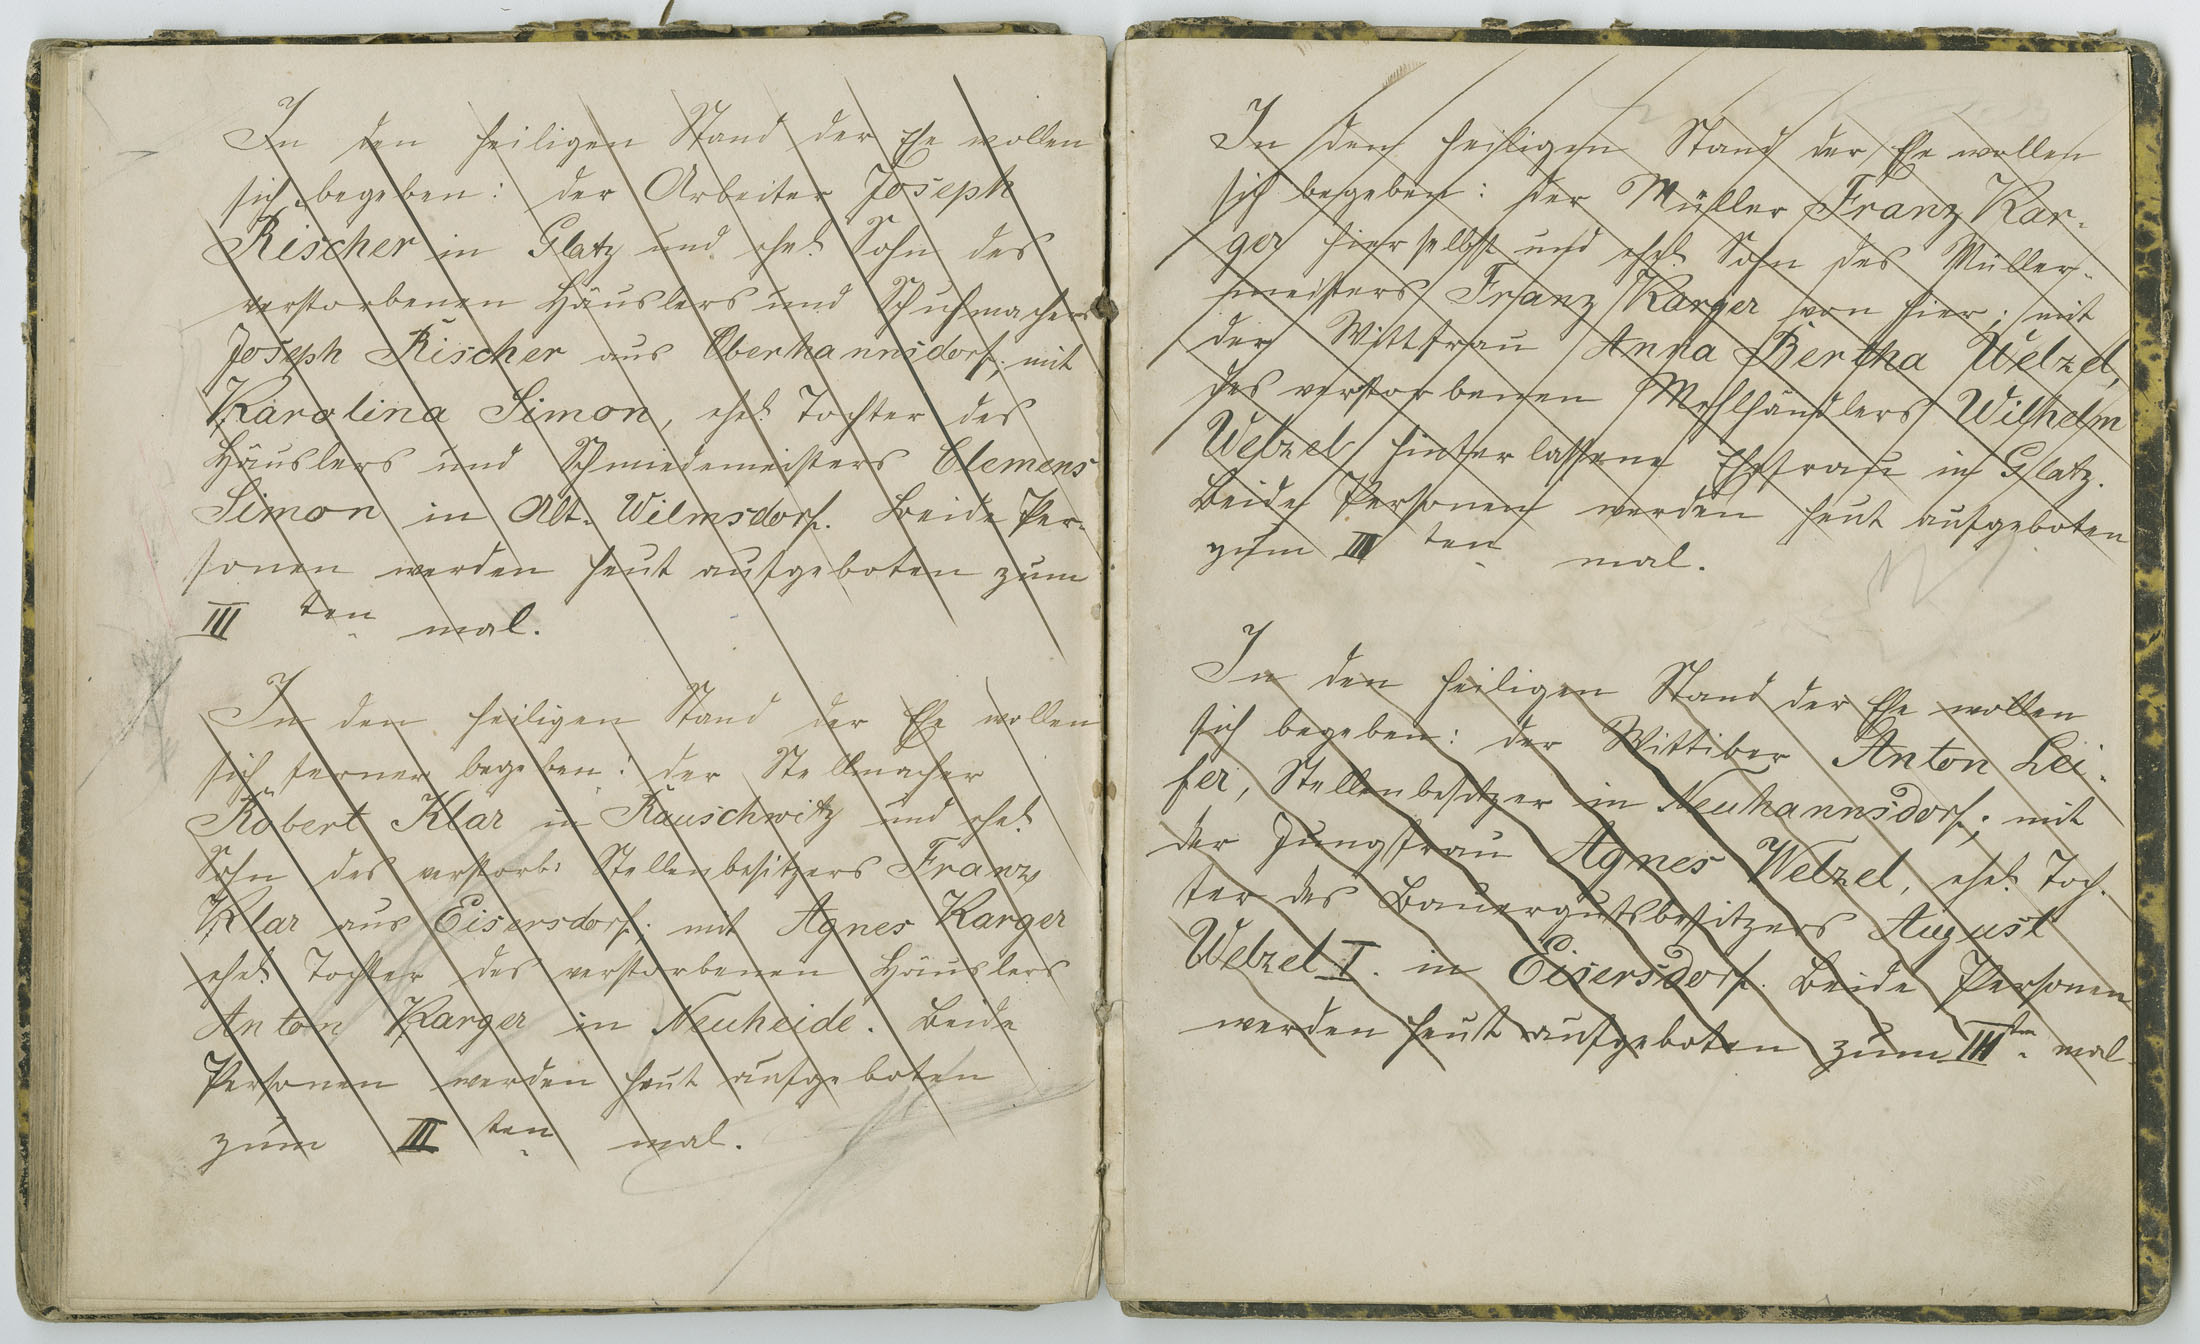 In den heiligen Stand der Ehe wollen
sich begeben: der Arbeiter Joseph
Rischer in Glatz und ehel. Sohn des
verstorbenen Häuslers und Schuhmachers
Joseph Rischer aus Oberhannsdorf; mit
Karolina Simon, ehel. Tochter des
Häuslers und Schmiedemeisters Clemens
Simon in Alt-Wilmsdorf. Beide Per-
sonen werden heut aufgeboten zum
III ten mal.
In den heiligen Stand der Ehe wollen
sich ferner begeben: der Stellmacher
Robert Klar in Rauschwitz und ehel.
Sohn des verstorb: Stellenbesitzers Franz
Klar aus Eisersdorf; mit Agnes Karger
ehel. Tochter des verstorbenen Häuslers
Anton Karger in Neuheide. Beide
Personen werden heut aufgeboten
zum III ten mal.
In den heiligen Stand der Ehe wollen
sich begeben: der Müller Franz Kar-
ger hierselbst und ehel. Sohn des Müller-
meisters Franz Karger von hier; mit
der Wittfrau Anna Bertha Welzel,
des verstorbenen Mehlhändlers Wilhelm
Welzel hinterlassene Ehefrau in Glatz.
Beide Personen werden heut aufgeboten
zum III ten mal.
In den heiligen Stand der Ehe wollen
sich begeben: der Wittiber Anton Lei-
fer, Stellenbesitzer in Neuhannsdorf; mit
der Jungfrau Agnes Welzel, ehel. Toch-
ter des Bauergutsbesitzers August
Welzel I. in Eisersdorf. Beide Personen
werden heut aufgeboten zum III ten mal.